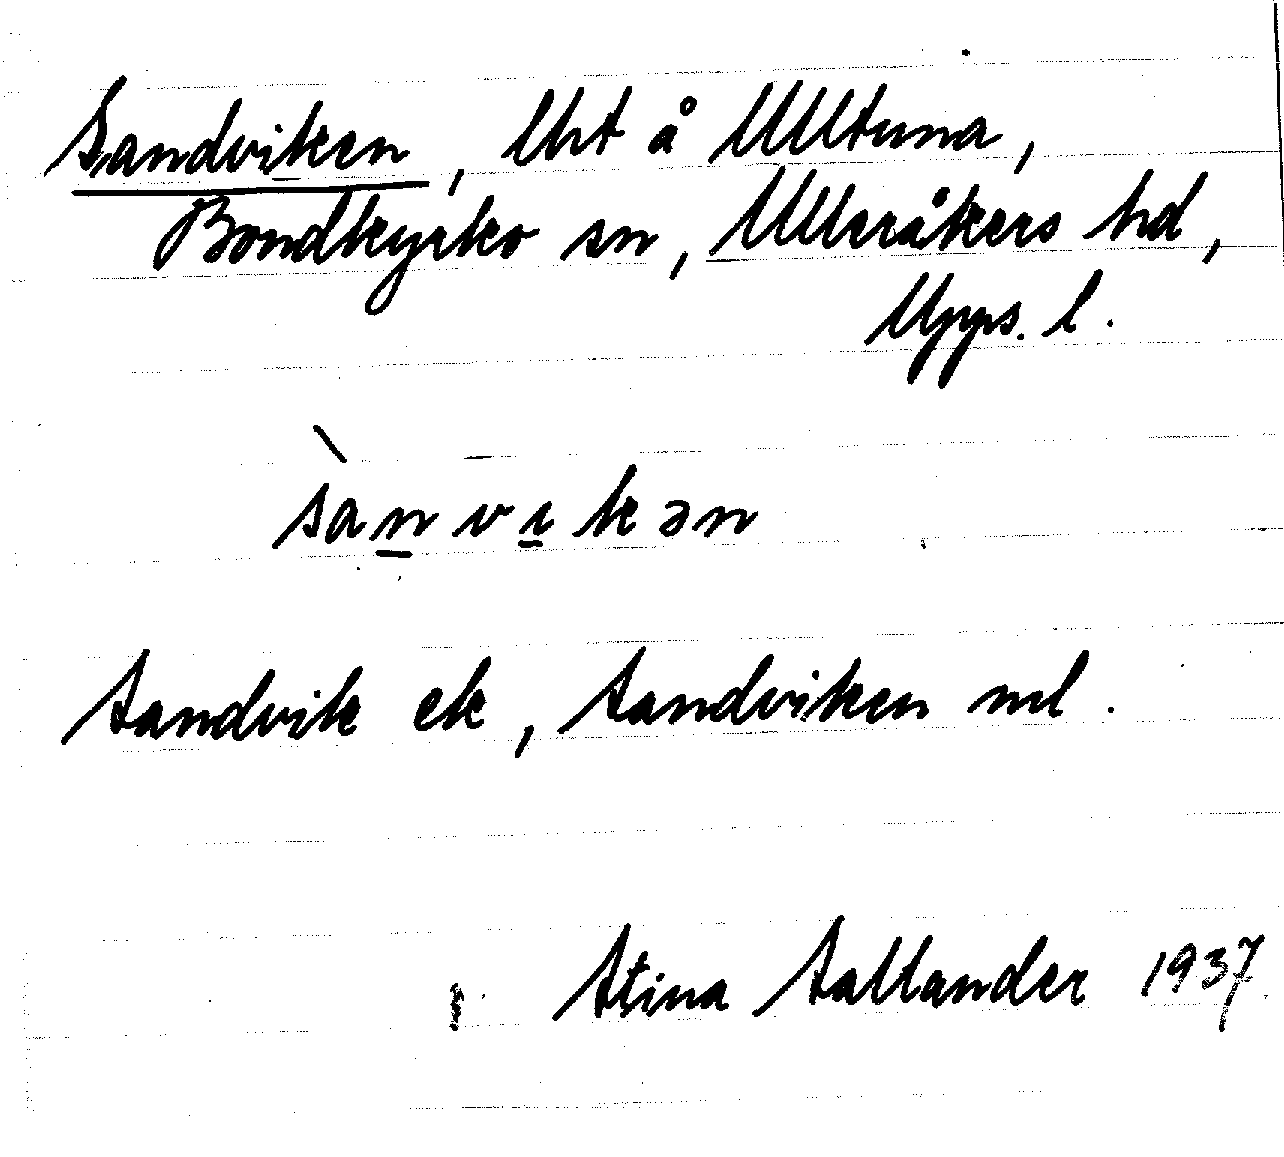 Sandviken, lht å Ulltuna,
Bondkyrko sn, Ulleråkers hd,
Upps. l.
sànvikən
Sandvik ek, Sandviken ml.
Stina Sallander 1937